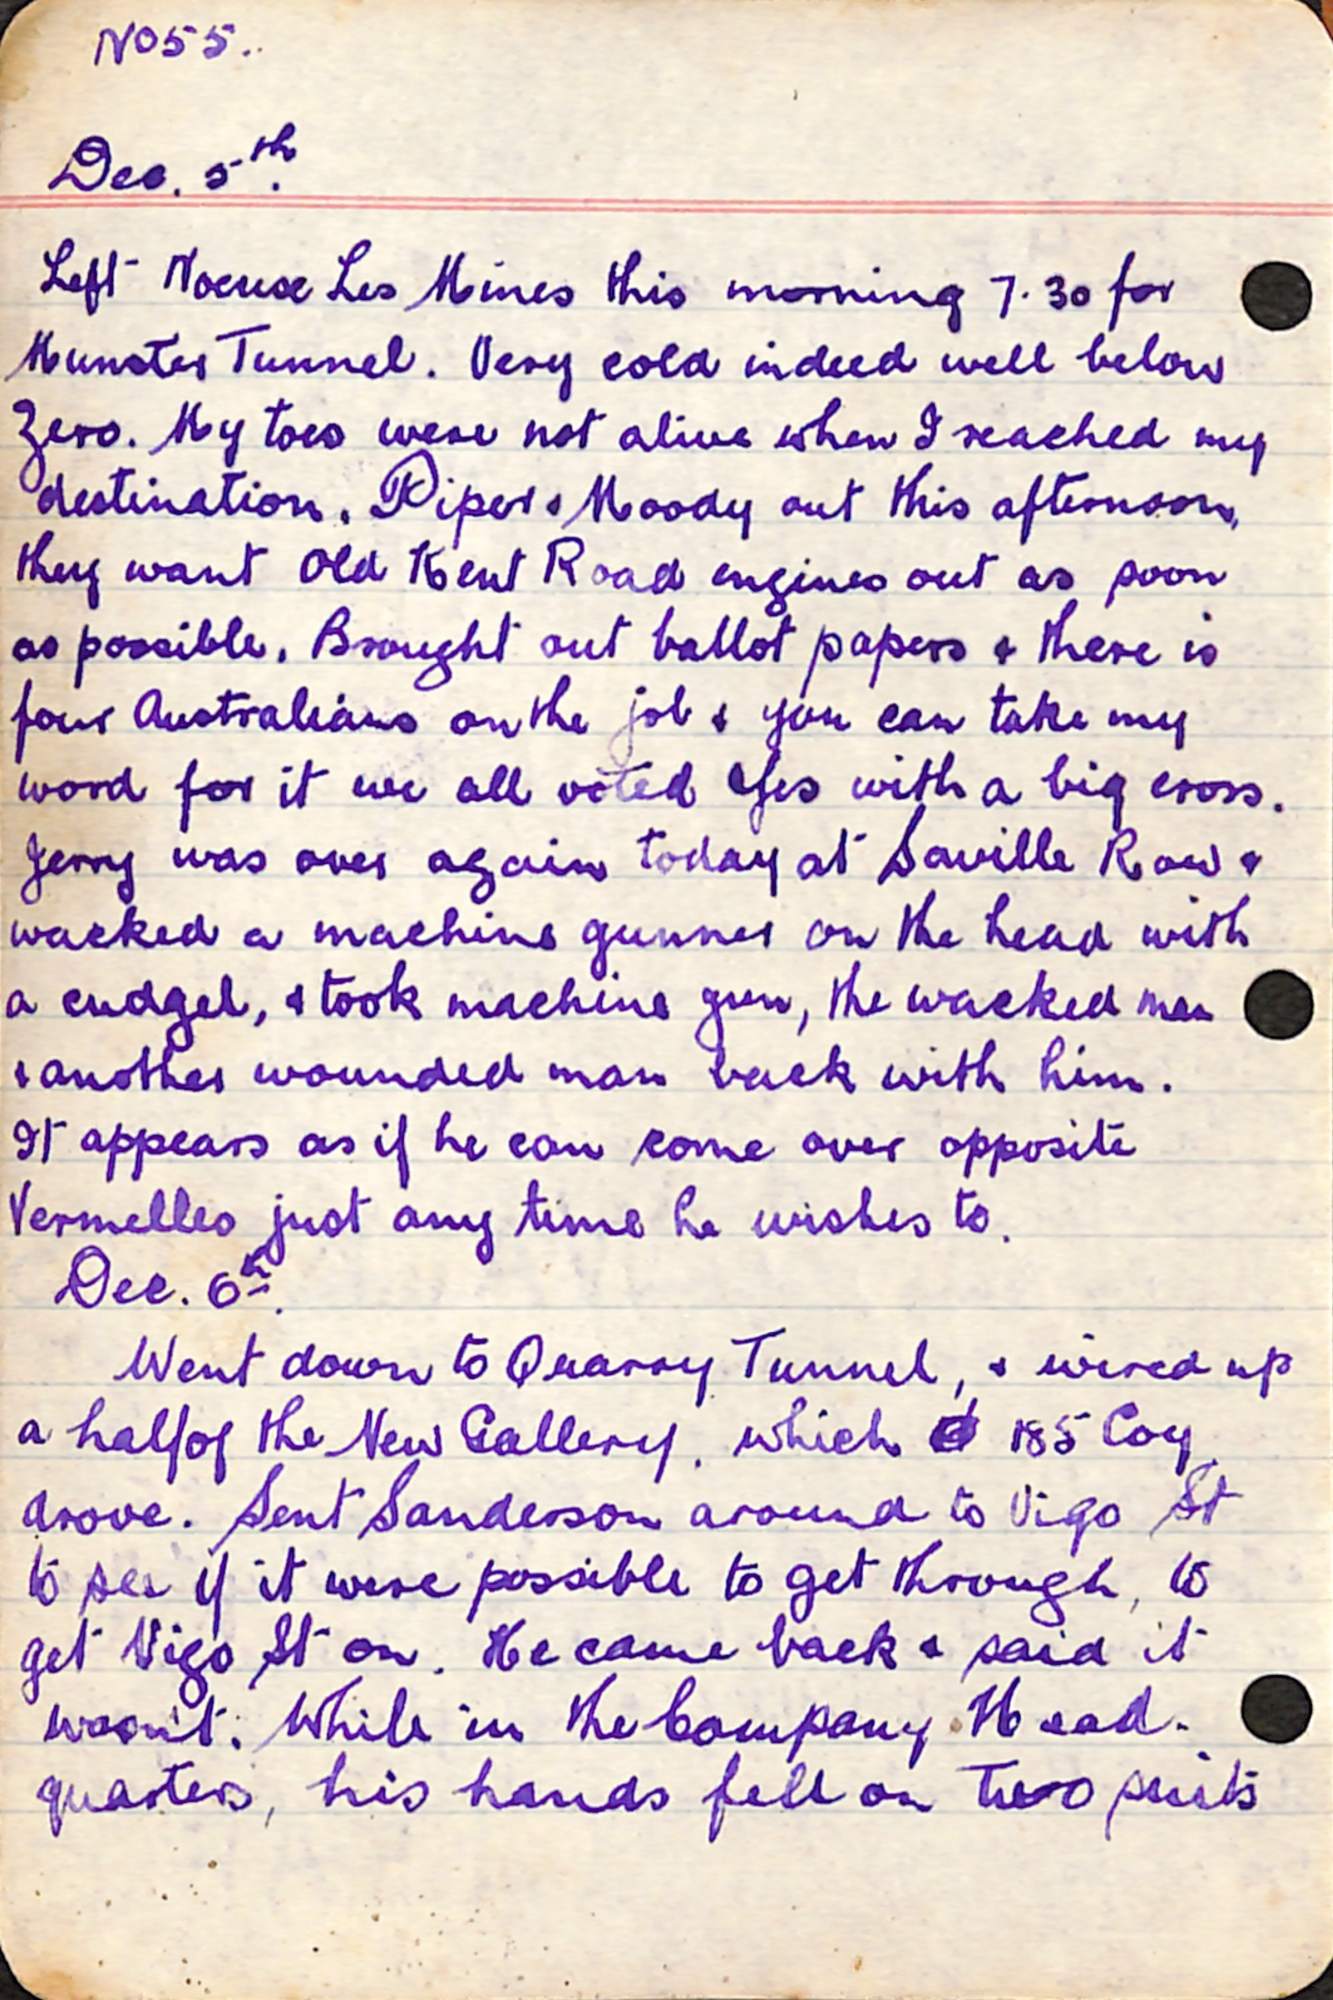 No 55..
Dec. 5th.
Left Noeuse Les Mines this morning 7.30 for
Munster Tunnel. Very cold indeed well below
Zero. My toes were not alive when I reached my
destination. Piper & Moody out this afternoon,
they want Old Kent Road engines out as soon
as possible. Brought out ballot papers & there is
four Australians on the job & you can take my
word for it we all voted Yes with a big cross.
Jerry was over again today at Saville Row &
wacked a machine gunner on the head with
a cudgel, & took machine gun, the wacked man
& another wounded man back with him.
It appears as if he can come over opposite
Vermelles just any time he wishes to.
Dec. 6th.
Went down to Quarry Tunnel, & wired up
a half of the New Gallery, which 185 Coy.
drove. Sent Sanderson around to Vigo St
to see if it were possible to get through, to
get Vigo St on. He came back & said it
wasn't. While in the Company Head-
quarters, his hands fell on two suits